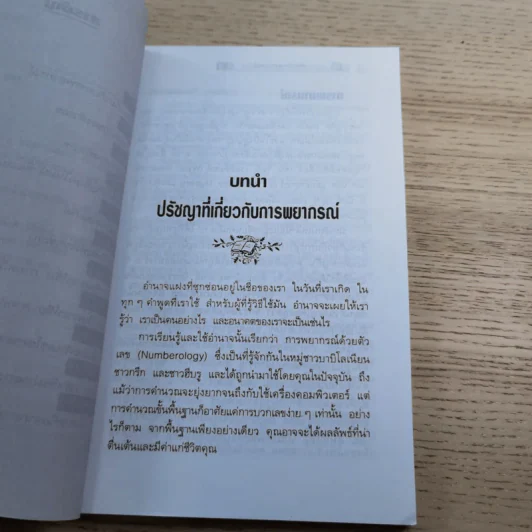 บทนำ
ปรัชญาที่เกี่ยวกับการพยากรณ์
อำนาจแฝงที่ซุกซ่อนอยู่ในชื่อของเรา ในวันที่เราเกิด ใน
ทุก ๆ คำพูดที่เราใช้ สำหรับผู้ที่รู้วิธีใช้มัน อำนาจจะเผยให้เรา
รู้ว่า เราเป็นคนอย่างไร และอนาคตของเราจะเป็นเช่นไร
การเรียนรู้และใช้อำนาจนั้นเรียกว่า การพยากรณ์ด้วยตัว
เลข (Numberology) ซึ่งเป็นที่รู้จักกันในหมู่ชาวบาบิโลเนียน
ชาวกรีก และชาวฮีบรู และได้ถูกนำมาใช้โดยคุณในปัจจุบัน ถึง
แม้ว่าการคำนวณจะยุ่งยากจนถึงกับใช้เครื่องคอมพิวเตอร์ แต่
การคำนวณขั้นพื้นฐานก็อาศัยแต่การบวกเลขง่าย ๆ เท่านั้น อย่าง
ไรก็ตาม จากพื้นฐานเพียงอย่างเดียว คุณอาจจะได้ผลลัพธ์ที่น่า
ตื่นเต้นและมีค่าแก่ชีวิตคุณ